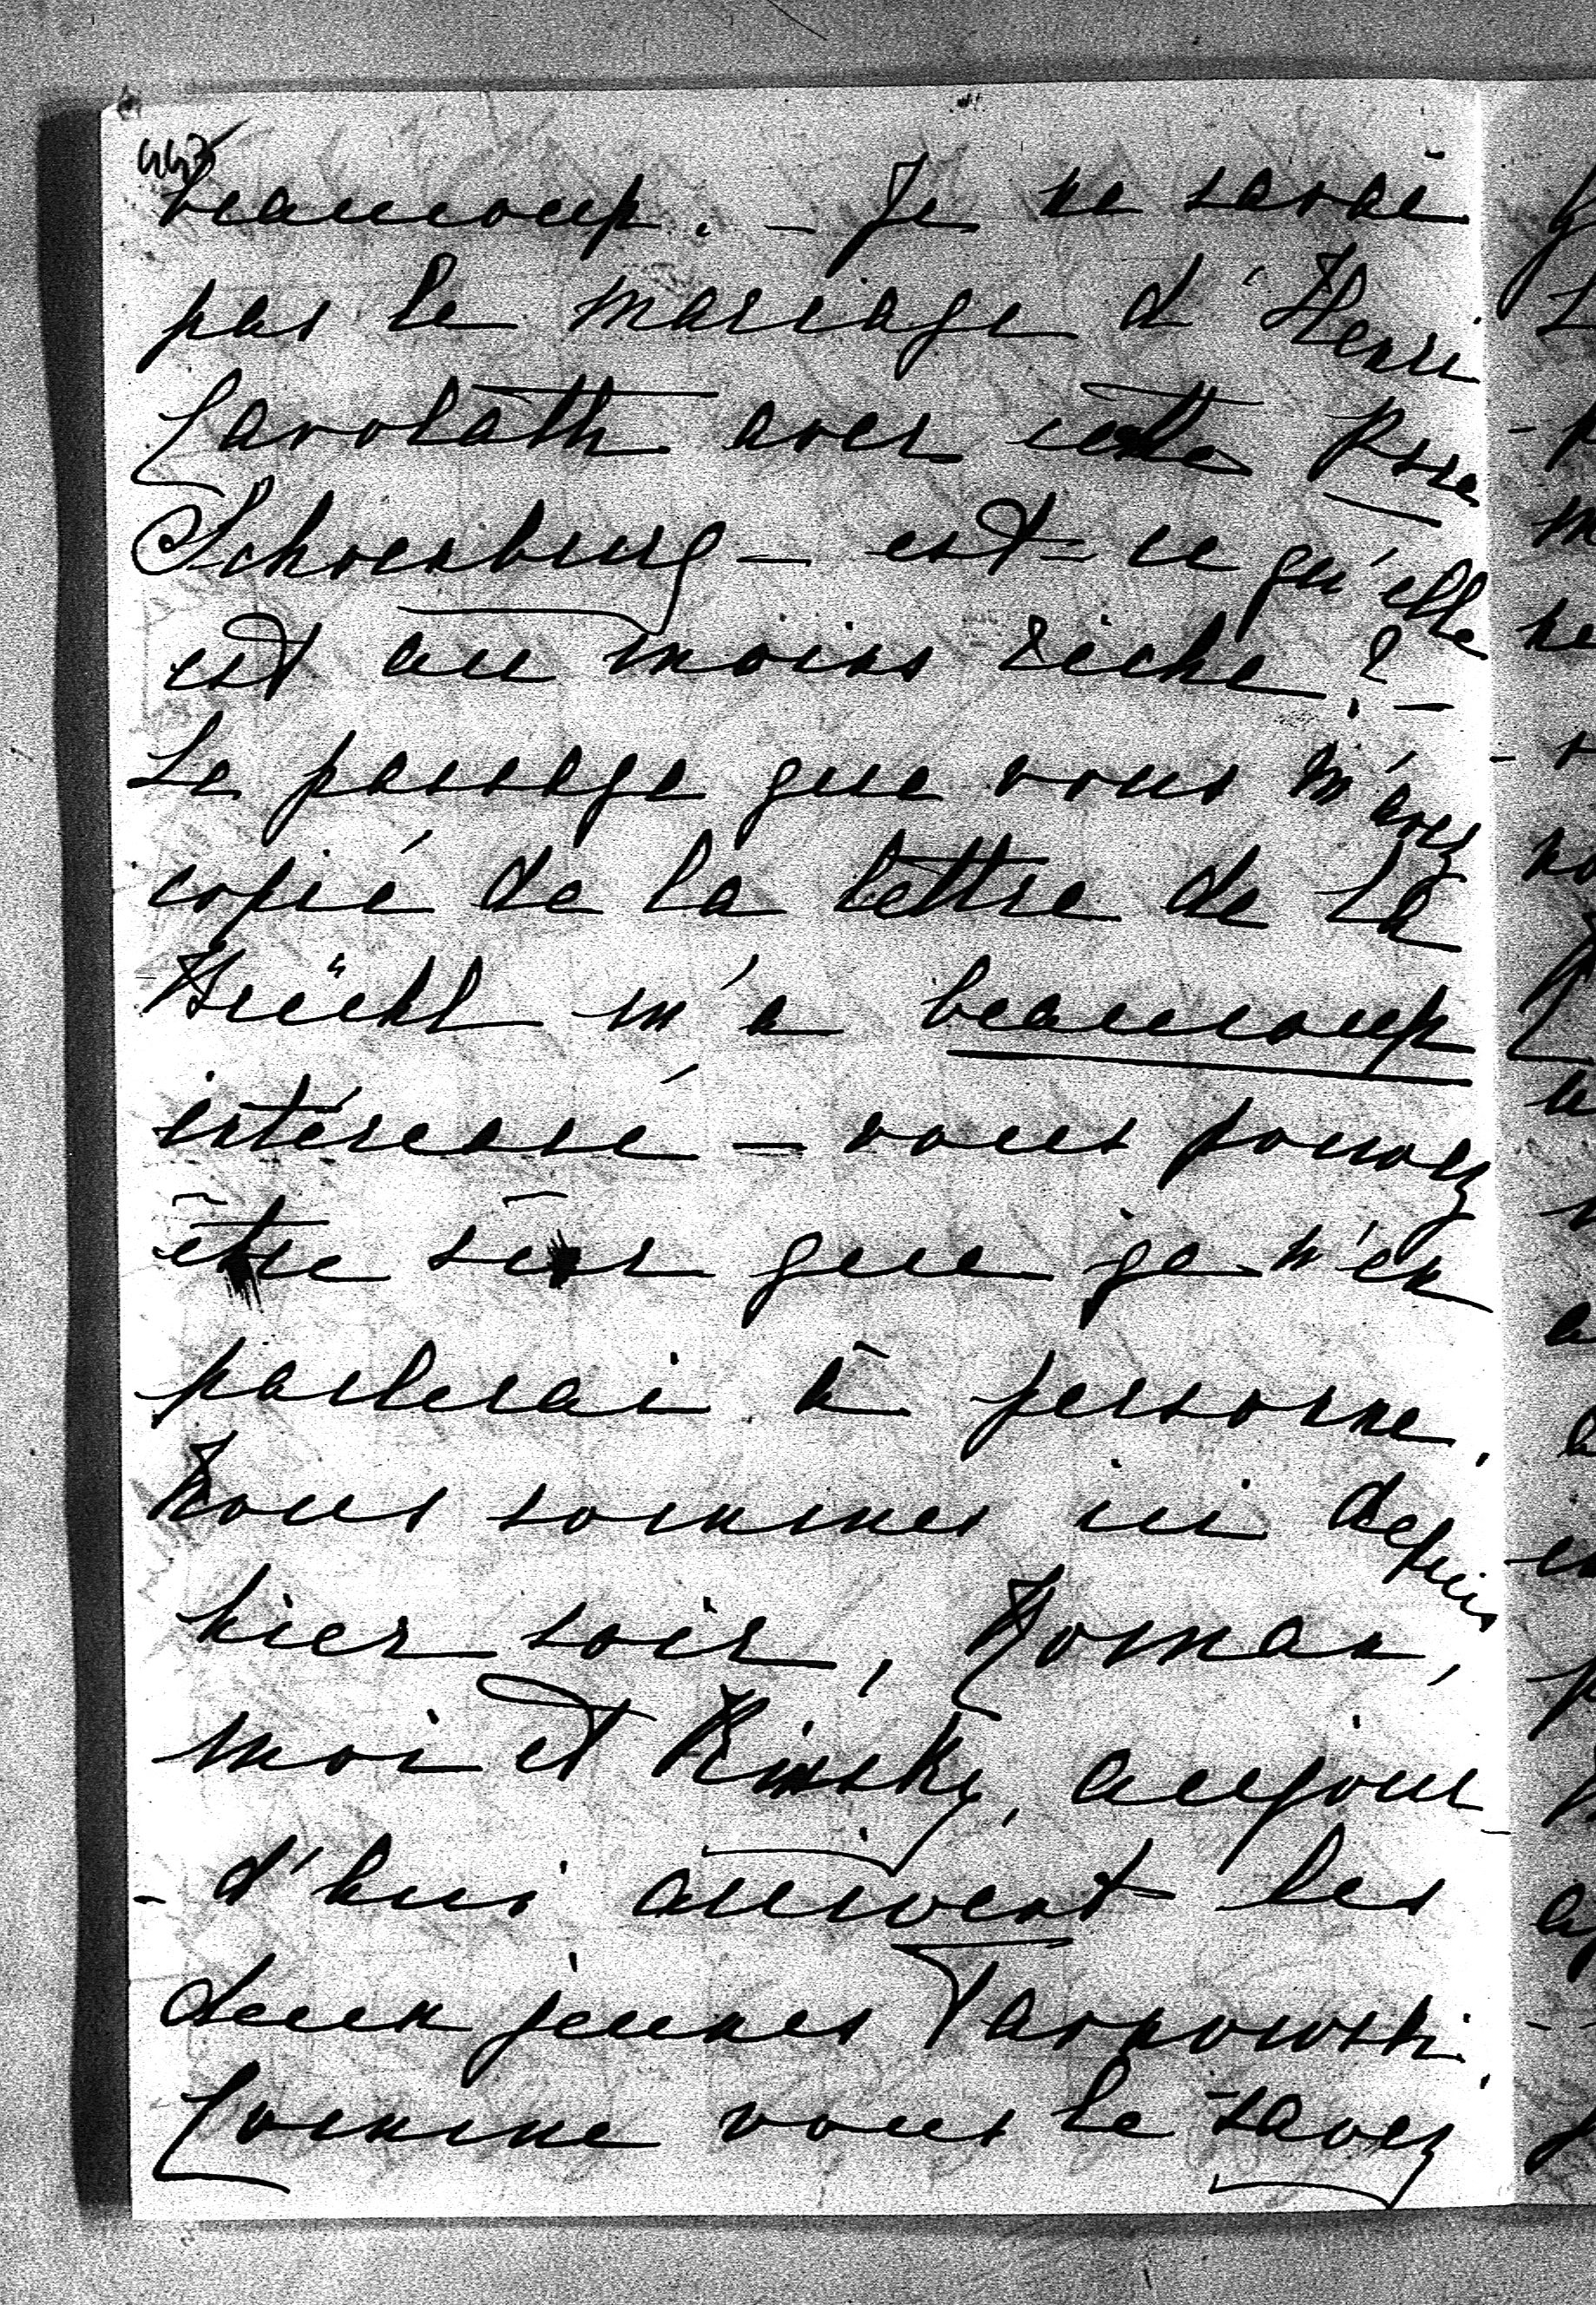 443
beaucoup. – Je ne savai
pas le mariage d'Henri
Carolath avec cette Psse
Schoenburg – est-ce qu'elle
est au moins riche? –
Le passage que vous m'avez
copié de la lettre de la
m'a beaucoup
intéressé – vous pouvez
être sûr que je n'en
parlerai à personne.
Nous sommes ici depuis
hier soir, Roman,
moi et Kinsky, aujour-
-d'hui arrivent les
deux jeunes Tarnowski.
Comme vous le savez